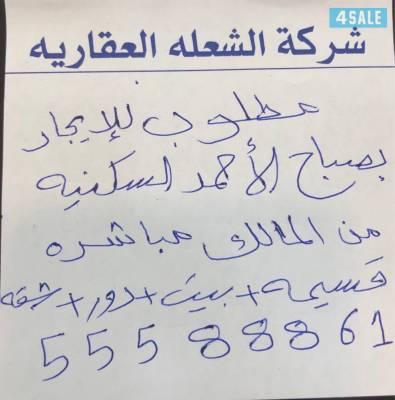 4SALE
شركة الشعله العقاريه
مطلوب للإيجار
بصباح الأحمد السكنيه
من المالك مباشره
قسيمه + بيت + دور + شقه
55588861